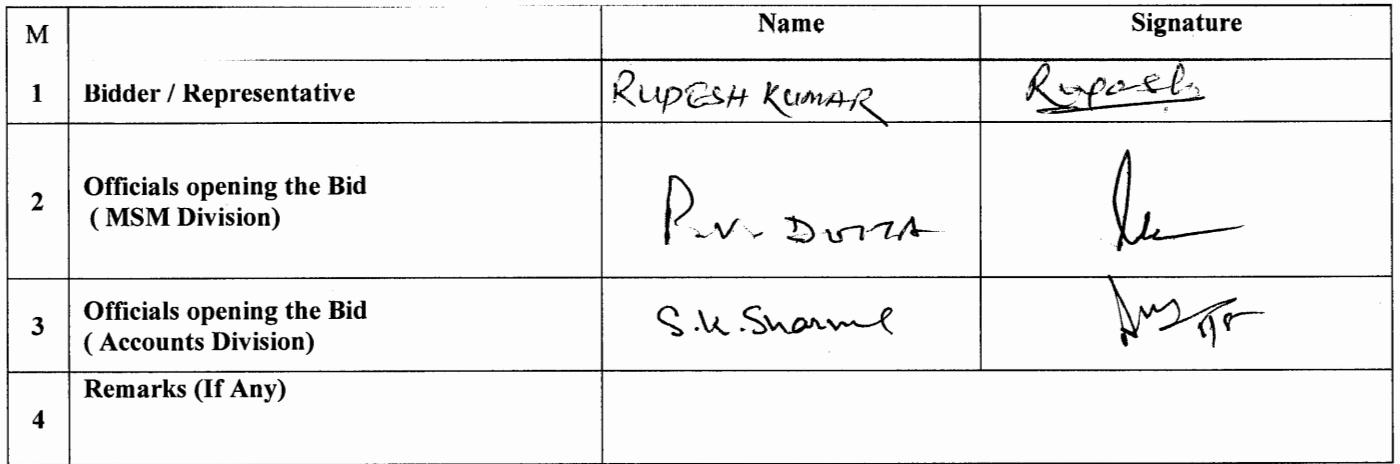 M Name Signature
1 Bidder / Representative RUPESH KUMAR Rupesh
2 Officials opening the Bid
( MSM Division) P.V. DUTTA
3 Officials opening the Bid
( Accounts Division) S.K. Sharma
4 Remarks (If Any)